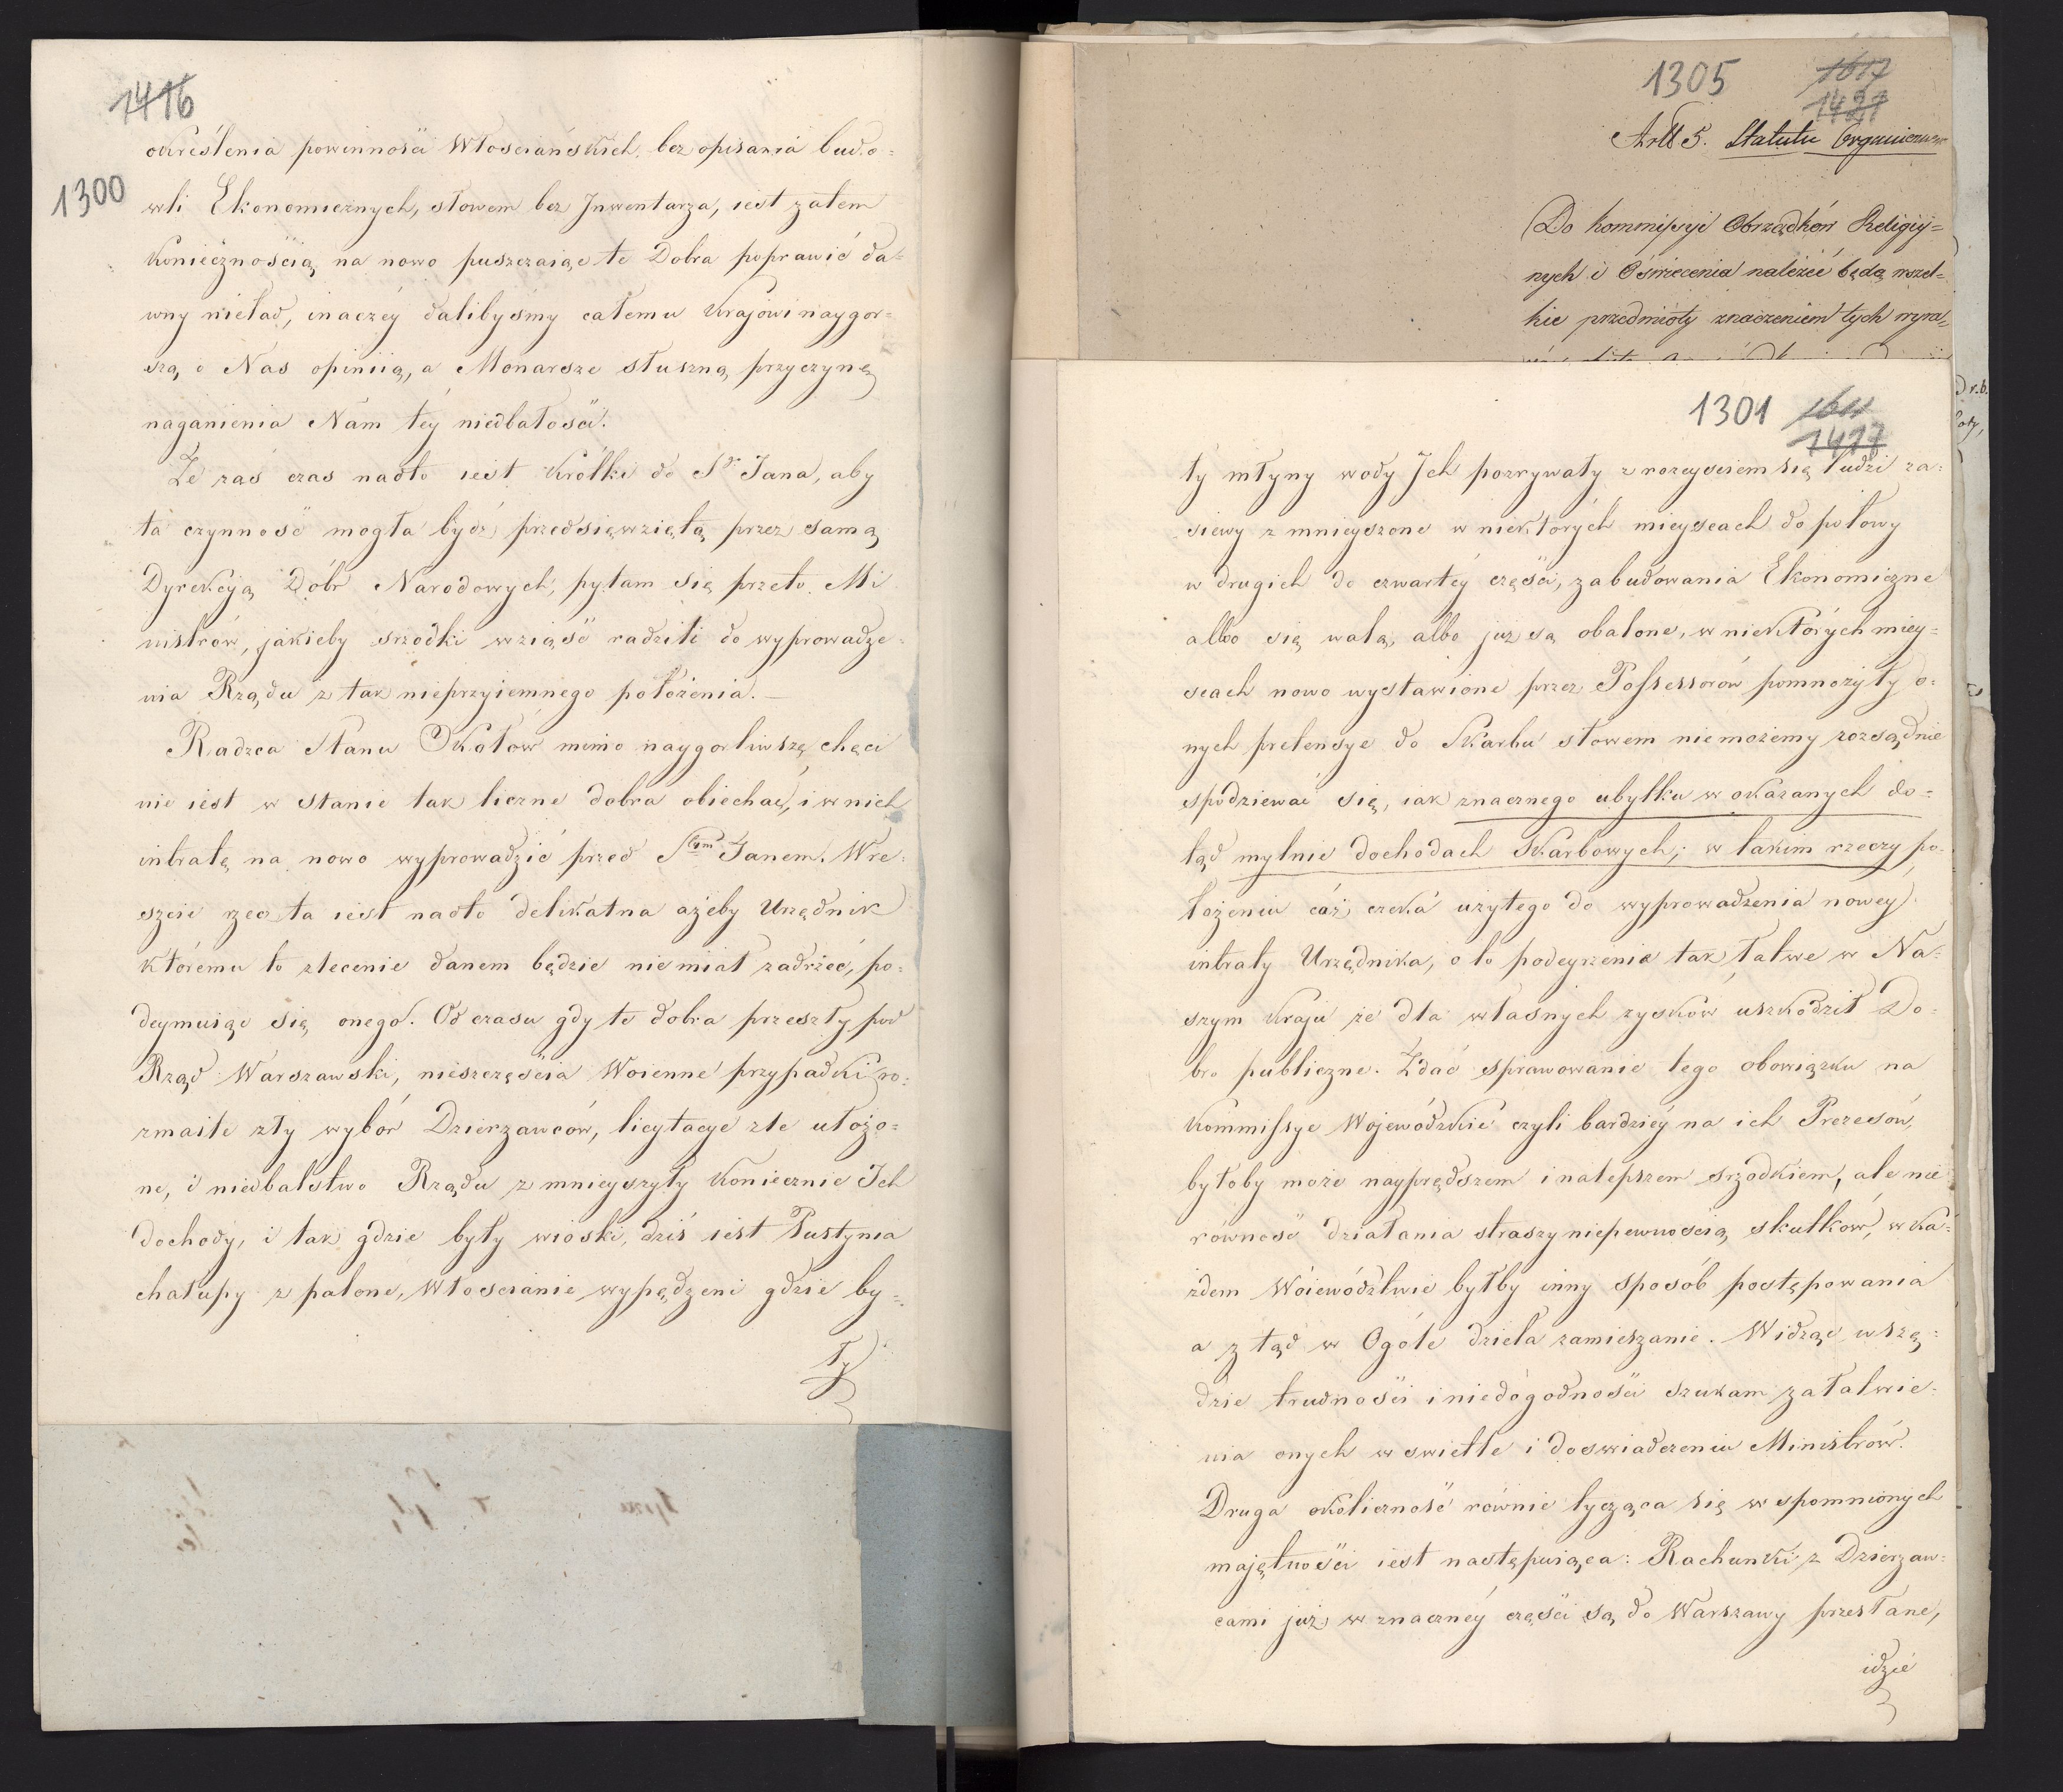 1416
1300
określenia powinności Włościańskich, bez opisania budo=
wli Ekonomicznych, słowem bez Inwentarza, iest zatem
koniecznością na nowo puszczaiąc te Dobra poprawić da=
wny nieład, inaczéy dalibyśmy całemu Krajowi naygor=
szą o Nas opiniią, a Monarsze słuszną przyczynę
naganienia Nam téy niedbałości.
Że zaś czas nadto iest krótki do Sgo Jana, aby
ta czynność mogła bydź przedsięwziętą przez samą
Dyrekcyą Dóbr Narodowych, pytam się przeto Mi
nistrów, jakieby srzodki wziąść radzili do wyprowadze=
nia Rządu z tak nieprzyiemnego położenia. —
Radzca Stanu Okołów mimo naygorliwszę chęci
nie iest w stanie tak liczne dobra obiechać, i w nich
intratę na nowo wyprowadzić przed Stym Janem. Wre=
szcie rzecz ta iest nadto delikatna ażeby Urzędnik
któremu to zlecenie danem będzie niemiał zadrżeć, po=
deymuiąc się onego. Od czasu gdy te dobra przeszły pod
Rząd Warszawski, nieszczęścia Woienne przypadki ro=
zmaite zły wybór Dzierzawców, licytacye złe ułożo=
ne, i niedbalstwo Rządu zmnieyszyły koniecznie Ich
dochody, i tak gdzie były wioski, dziś iest Pustynia
chałupy spalone, Włościanie wypędzeni gdzie by=
ły
1305
1617
1421
Art 5. Statutu Organicznego
Do kommissyi Obrządków Religiy=
nych i Oświecenia należeć będą wszel=
kie przedmioty znaczeniem tych wyra=
1301
1417
ty młyny wody Ich pozrywały z rozeyściem się ludzi za=
siewy zmnieyszone w niektórych mieyscach do połowy
w drugich do czwartéy części, zabudowania Ekonomiczne
albo się walą, albo już są obalone, w niektórych miey=
scach nowo wystawione przez Possessorów pomnożyły o=
nych pretensye do Skarbu słowem niemożemy rozsądnie
spodziewać się, iak znacznego ubytku w okazanych do=
tąd mylnie dochodach Skarbowych; w takim rzeczy po=
łożeniu cóż czeka użytego do wyprowadzenia nowey
intraty Urzędnika, oto podeyrzenie tak łatwe w Na=
szym Kraju że dla własnych zysków uszkodził Do=
bro publiczne. Zdać sprawowanie tego obowiązku na
Kommissye Wojewódzkie czyli bardziéy na ich Prezesów,
byłoby może nayprędszem i nalepszem srzodkiem, ale nie
równość działania straszy niepewnością skutków, w ka=
żdem Woiewództwie byłby inny sposób postępowania
a z tąd w Ogóle dzieła zamieszanie. Widząc wszę=
dzie trudności i niedogodności szukam załatwie=
nia onych w swietle i doswiadczeniu Ministrów.
Druga okoliczność równie tycząca się wspomnionych
majętności iest następuiąca: Rachunki z Dzierzaw=
cami już w znacznéy części są do Warszawy przesłane,
idzie